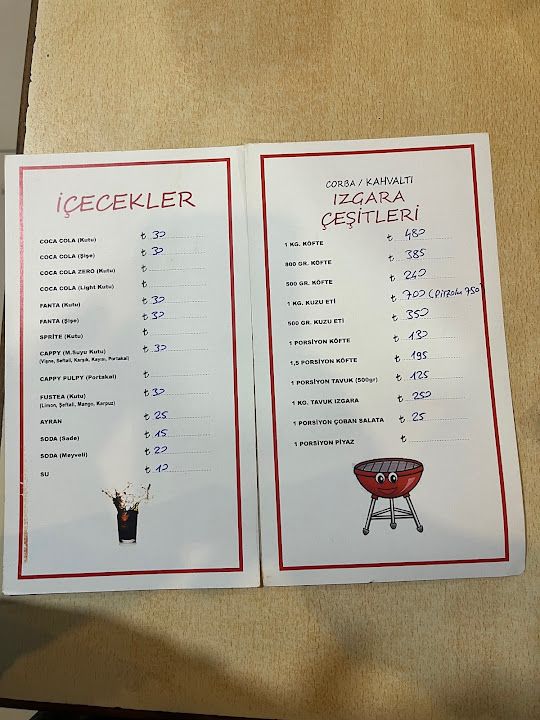 İÇECEKLER
COCA COLA (Kutu) ₺ 30
COCA COLA (Şişe) ₺ 30
COCA COLA ZERO (Kutu) ₺
COCA COLA (Light Kutu) ₺
FANTA (Kutu) ₺ 30
FANTA (Şişe) ₺ 30
SPRİTE (Kutu) ₺
CAPPY (M.Suyu Kutu) ₺ 30
(Vişne, Şeftali, Karışık, Kayısı, Portakal)
CAPPY PULPY (Portakal) ₺
FUSTEA (Kutu) ₺ 30
(Limon, Şeftali, Mango, Karpuz)
AYRAN ₺ 25
SODA (Sade) ₺ 15
SODA (Meyveli) ₺ 20
SU ₺ 10
CORBA / KAHVALTI
IZGARA
ÇEŞİTLERİ
1 KG. KÖFTE ₺ 480
800 GR. KÖFTE ₺ 385
500 GR. KÖFTE ₺ 240
1 KG. KUZU ETİ ₺ 700 (Pirzola 750
500 GR. KUZU ETİ ₺ 350
1 PORSİYON KÖFTE ₺ 130
1,5 PORSİYON KÖFTE ₺ 195
1 PORSİYON TAVUK (500gr) ₺ 125
1 KG. TAVUK IZGARA ₺ 250
1 PORSİYON ÇOBAN SALATA ₺ 25
1 PORSİYON PİYAZ ₺